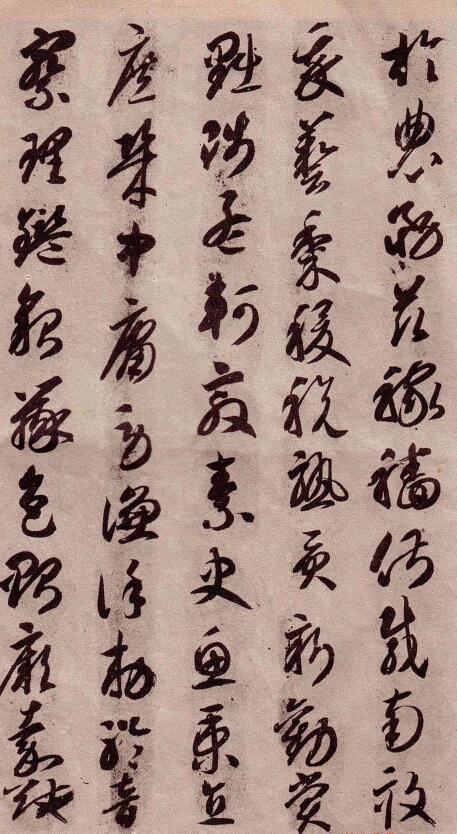 於農務茲稼穡俶載南畝
我藝黍稷稅熟貢新勸賞
黜陟孟軻敦素史魚秉直
庶幾中庸勞謙謹敕聆音
察理鑑貌辨色貽厥嘉猷